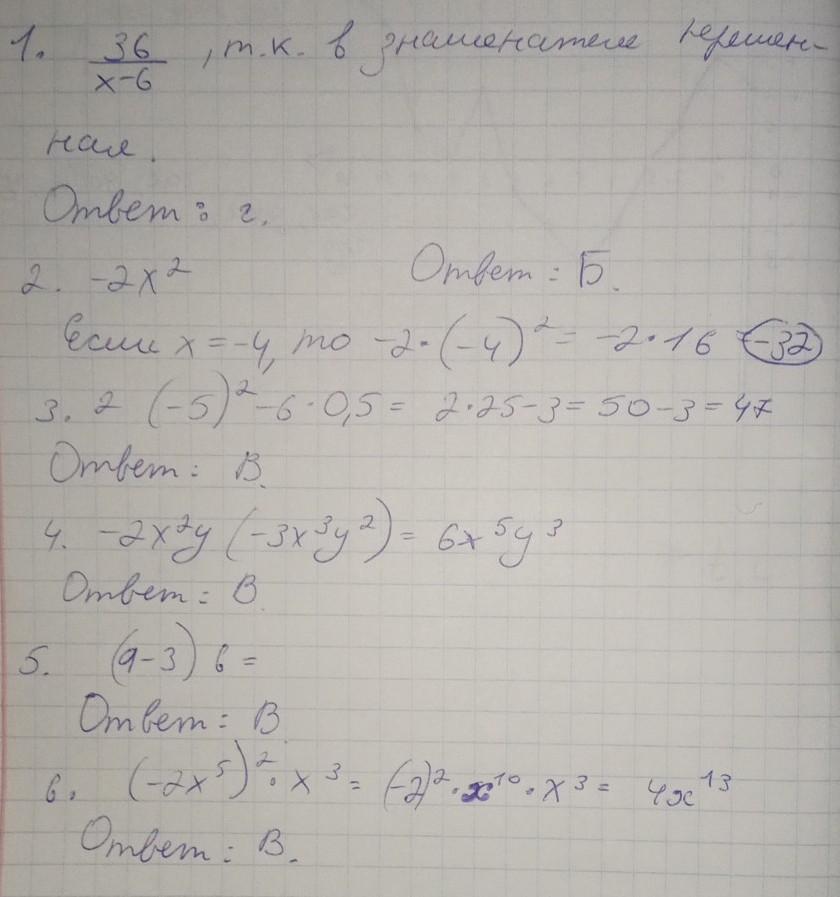 1. 36/(x-6), т.к. в знаменателе перемен-
ная.
Ответ: г.
2. -2x² Ответ: Б.
Если x = -4, то -2·(-4)² = -2·16 = -32
3. 2 (-5)² - 6·0,5 = 2·25-3 = 50-3 = 47
Ответ: В.
4. -2x²y (-3x³y²) = 6x⁵y³
Ответ: В
5. (a-3) b =
Ответ: В
6. (-2x⁵)²·x³ = (-2)²·x¹⁰·x³ = 4x¹³
Ответ: В.